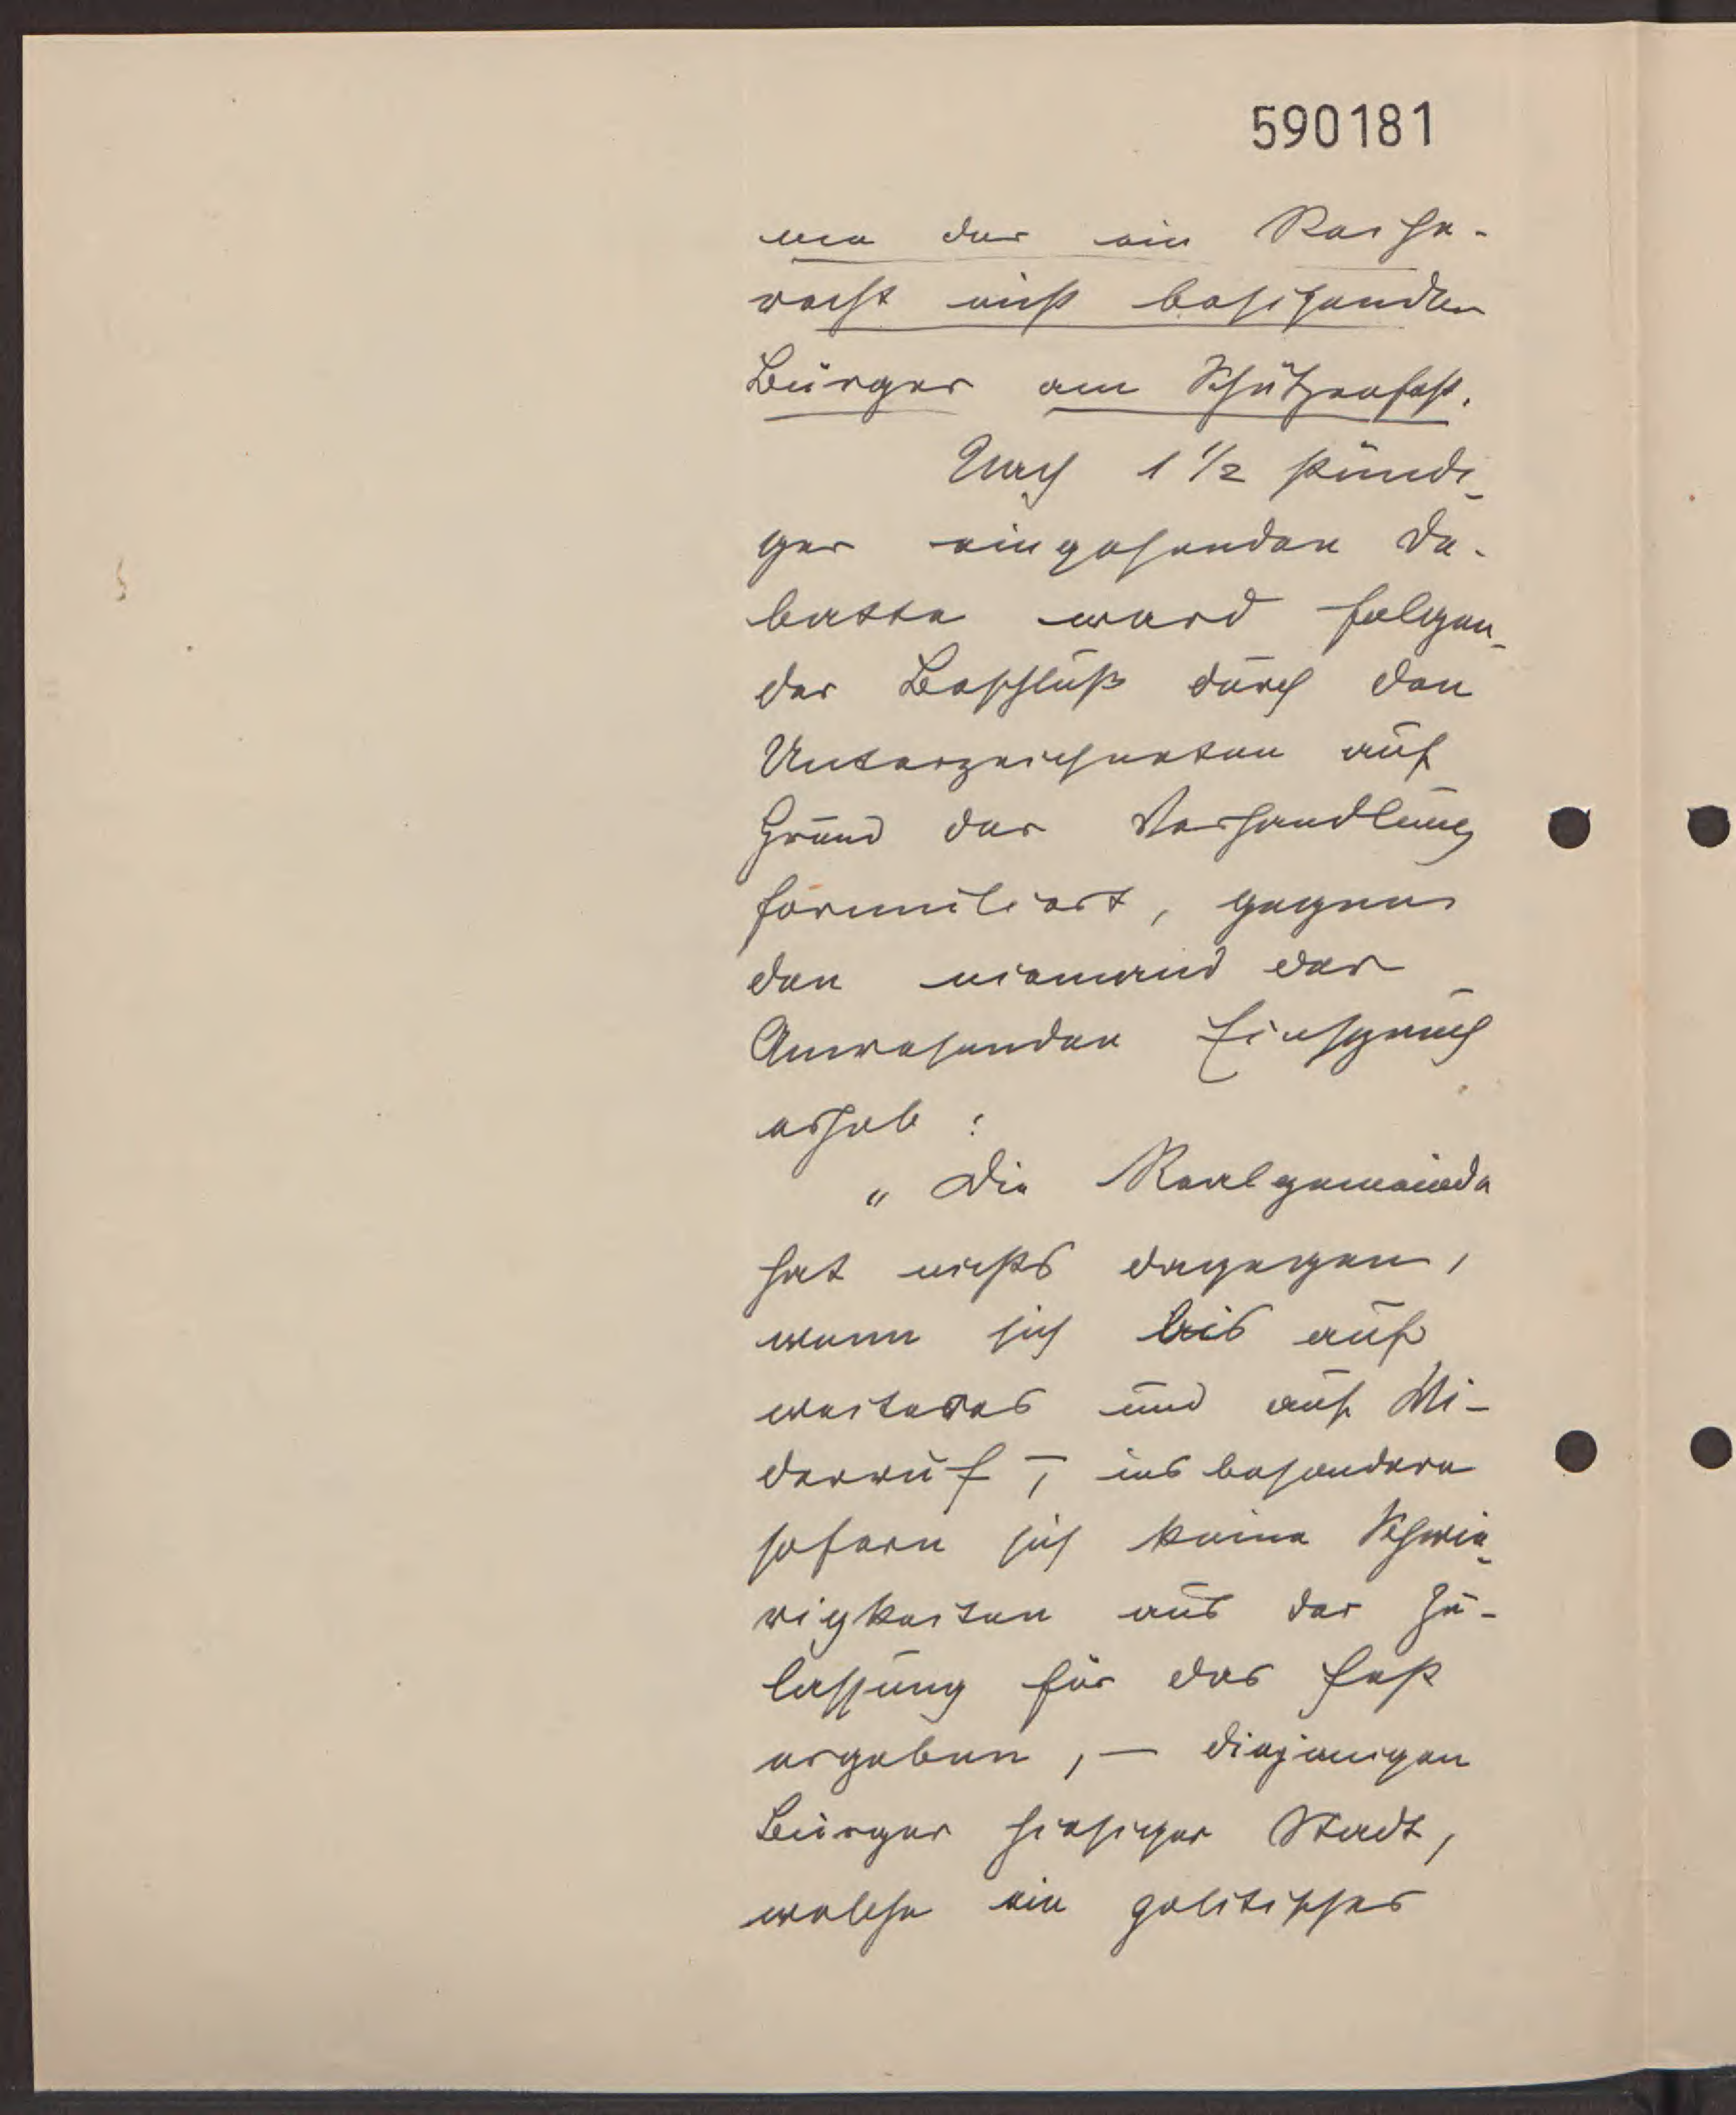 590181
me der ein Reihe-
recht nicht besitzenden
Bürger am Schützenfest.
Nach 1 1/2 stündi-
ger eingehenden De-
batte ward folgen-
der Beschluß durch den
Unterzeichneten auf
Grund der Verhandlung
formuliert, gegen
den niemand der
Anwesenden Einspruch
erhob:
„Die Realgemeinde
hat nichts dagegen,
wenn sich bis auf
weiteres und auf Wi-
derruf, insbesondere
sofern sich keine Schwie-
rigkeiten aus der Zu-
lassung für das Fest
ergeben, — diejenigen
Bürger hiesiger Stadt,
welche ein politisches